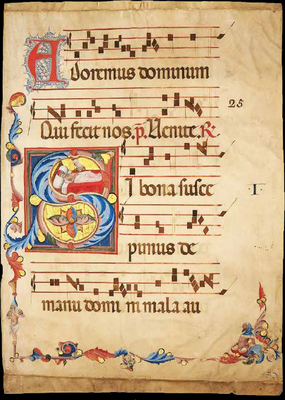 Adoremus dominum
25
Qui fecit nos. p. Uenite. R.
Si bona susce
·I·
pimus de
manu domi ni mala au